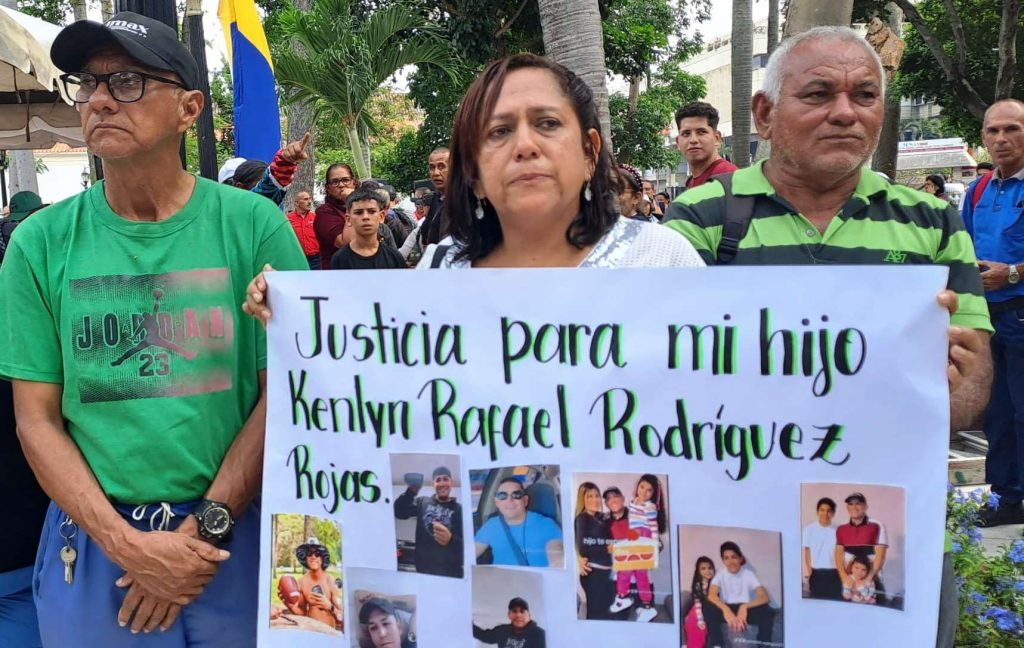 Justicia para mi hijo
Kenlyn Rafael Rodríguez
Rojas.
JORDAN
23